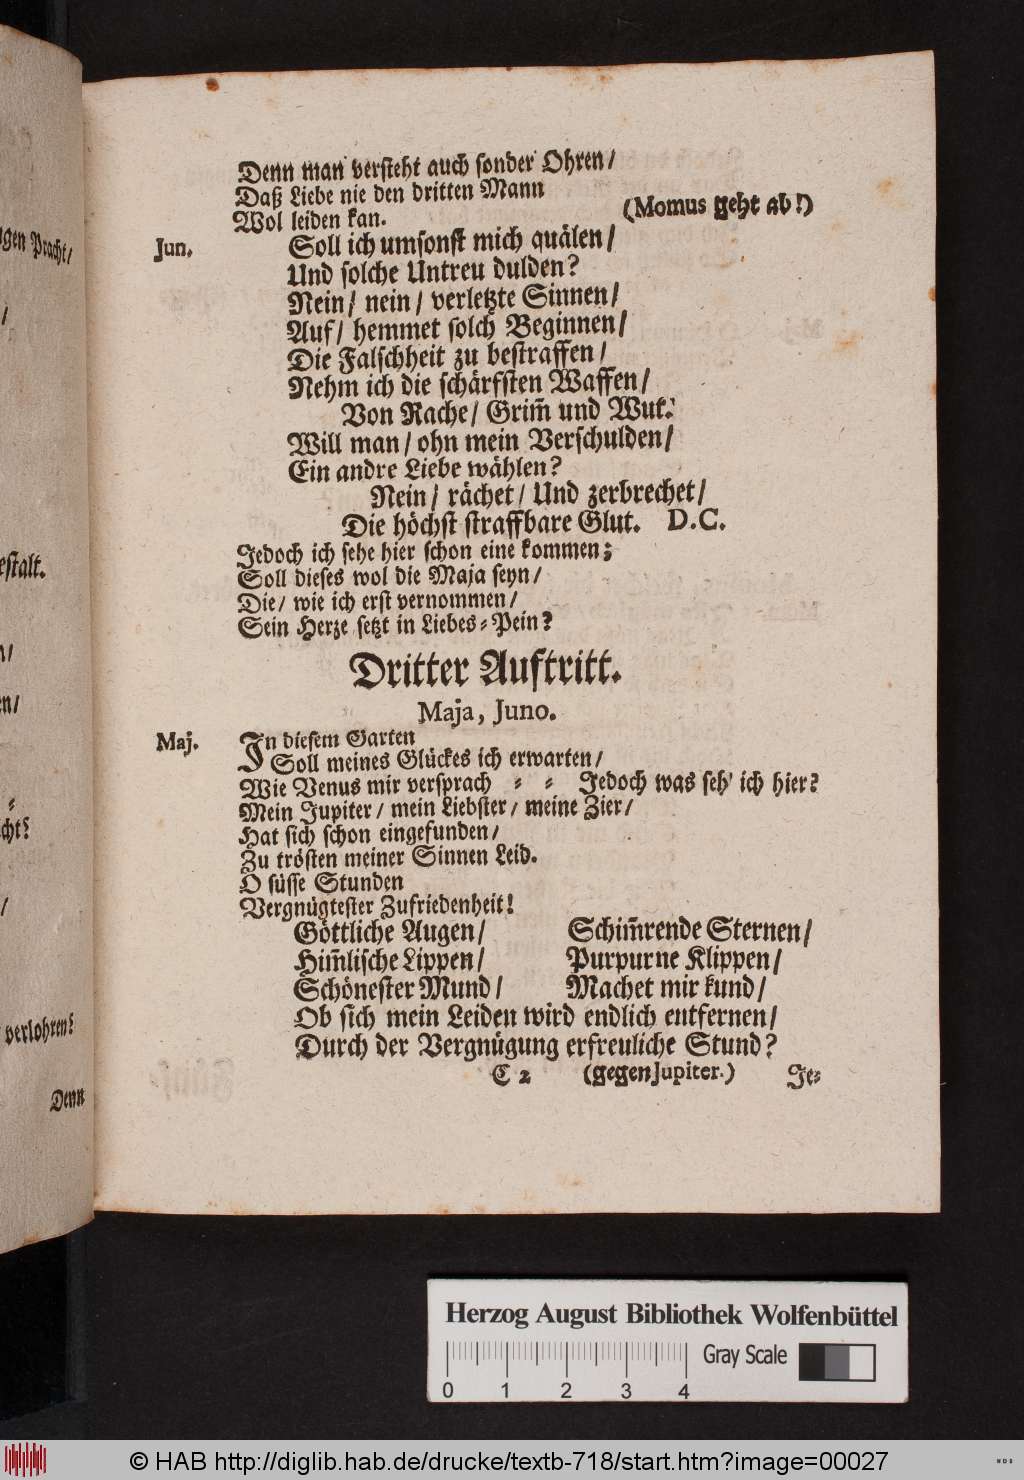 Denn man versteht auch sonder Ohren/
Daß Liebe nie den dritten Mann
Wol leiden kan.
(Momus geht ab!)
Jun. Soll ich umsonst mich quälen/
Und solche Untreu dulden?
Nein/ nein/ verletzte Sinnen/
Auf/ hemmet solch Beginnen/
Die Falschheit zu bestraffen/
Nehm ich die schärfsten Waffen/
Von Rache/ Grim̃ und Wut.
Will man/ ohn mein Verschulden/
Ein andre Liebe wählen?
Nein/ rächet/ Und zerbrechet/
Die höchst straffbare Glut. D.C.
Jedoch ich sehe hier schon eine kommen;
Soll dieses wol die Maja seyn/
Die/ wie ich erst vernommen/
Sein Herze setzt in Liebes-Pein?
Dritter Auftritt.
Maja, Juno.
Maj. In diesem Garten
Soll meines Glückes ich erwarten/
Wie Venus mir versprach - - Jedoch was seh' ich hier?
Mein Jupiter/ mein Liebster/ meine Zier/
Hat sich schon eingefunden/
Zu trösten meiner Sinnen Leid.
O süsse Stunden
Vergnügtester Zufriedenheit!
Göttliche Augen/ Schim̃rende Sternen/
Him̃lische Lippen/ Purpurne Klippen/
Schönester Mund/ Machet mir kund/
Ob sich mein Leiden wird endlich entfernen/
Durch der Vergnügung erfreuliche Stund?
C 2 (gegen Jupiter.) Je-
Pracht/
/
estalt.
n/
en/
-
cht?
/
verlohren?
Denn
Herzog August Bibliothek Wolfenbüttel
Gray Scale
0 1 2 3 4
© HAB http://diglib.hab.de/drucke/textb-718/start.htm?image=00027